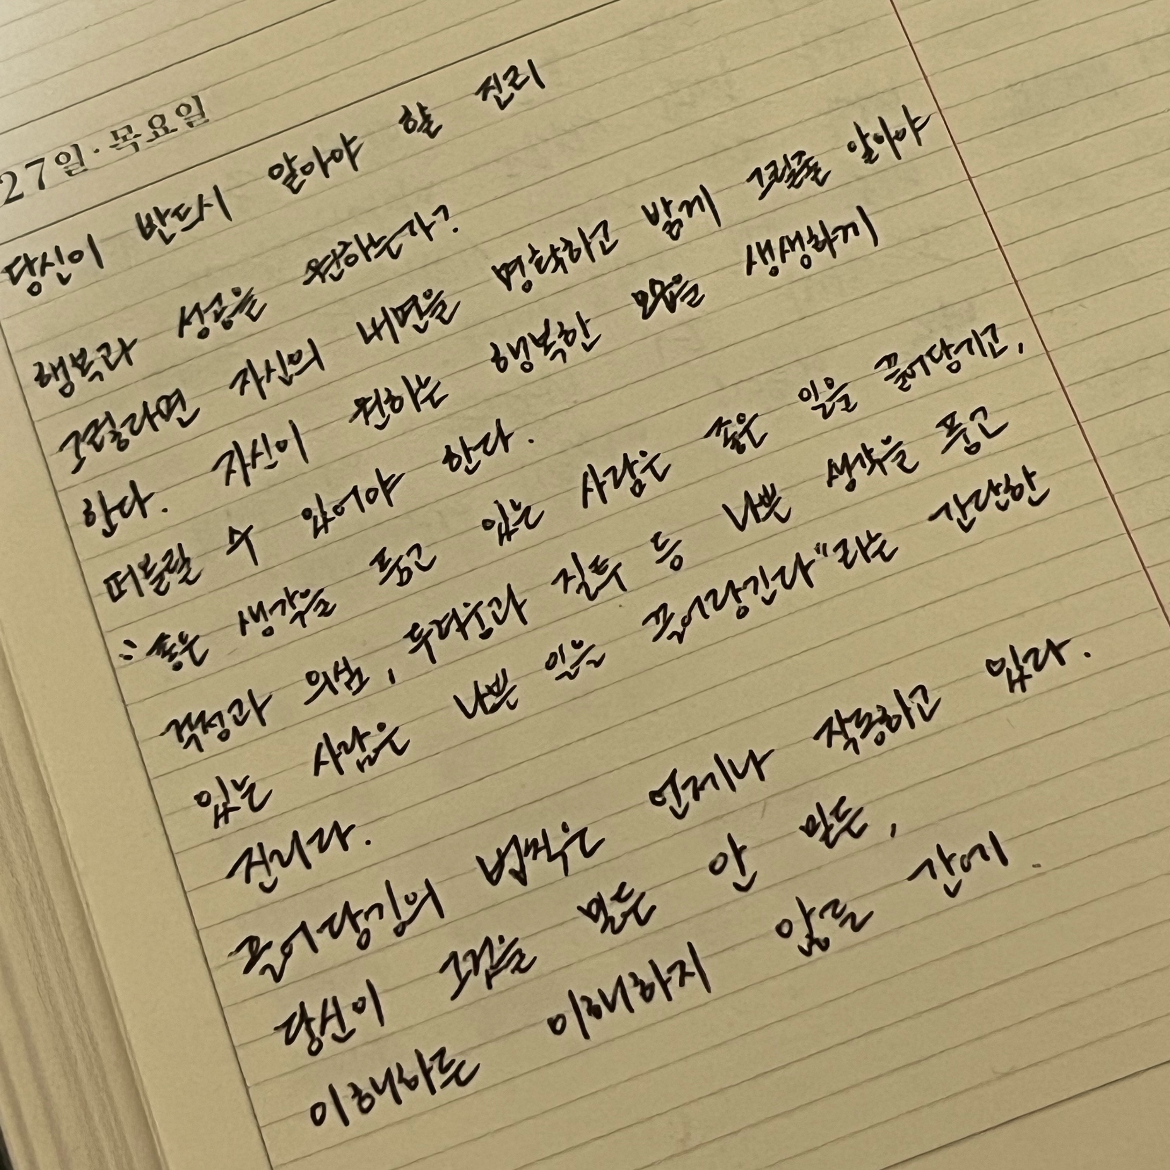 27일·목요일
당신이 반드시 알아야 할 진리
행복과 성공을 원하는가?
그렇다면 자신의 내면을 명확하고 밝게 그릴줄 알아야
한다. 자신이 원하는 행복한 모습을 생생하게
떠올릴 수 있어야 한다.
"좋은 생각을 품고 있는 사람은 좋은 일을 끌어당기고,
걱정과 의심, 두려움과 질투 등 나쁜 생각을 품고
있는 사람은 나쁜 일을 끌어당긴다"라는 간단한
진리다.
끌어당김의 법칙은 언제나 작동하고 있다.
당신이 그것을 믿든 안 믿든,
이해하든 이해하지 않든 간에.